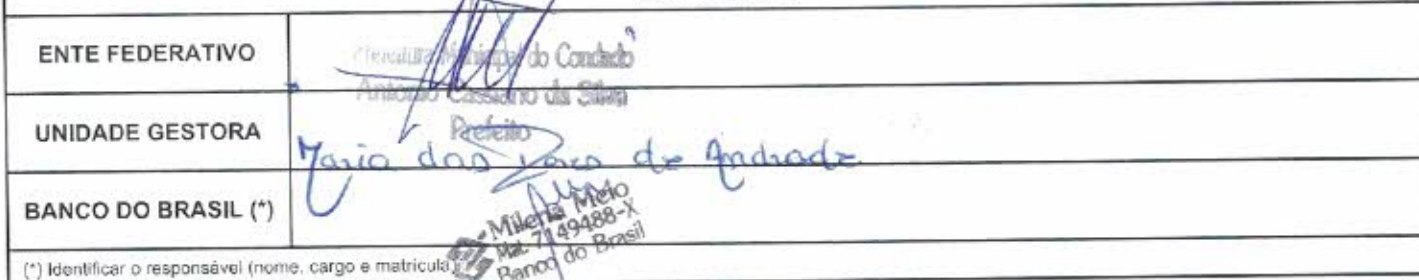 ENTE FEDERATIVO
Prefeitura Municipal do Condado
Antonio Cassiano da Silva
Prefeito
UNIDADE GESTORA
Maria das de Andrade
BANCO DO BRASIL (*)
Melo
Mat. 7149488-X
Banco do Brasil
(*) Identificar o responsável (nome, cargo e matrícula